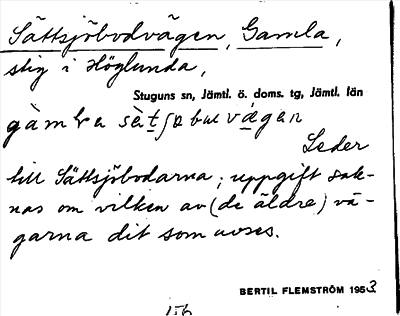 Sättsjöbodvägen, Gamla,
stig i Höglunda,
Stuguns sn, Jämtl. ö. doms. tg, Jämtl. län
Leder
till Sättsjöbodarna; uppgift sak-
nas om vilken av (de äldre) vä-
garna dit som avses.
BERTIL FLEMSTRÖM 1953